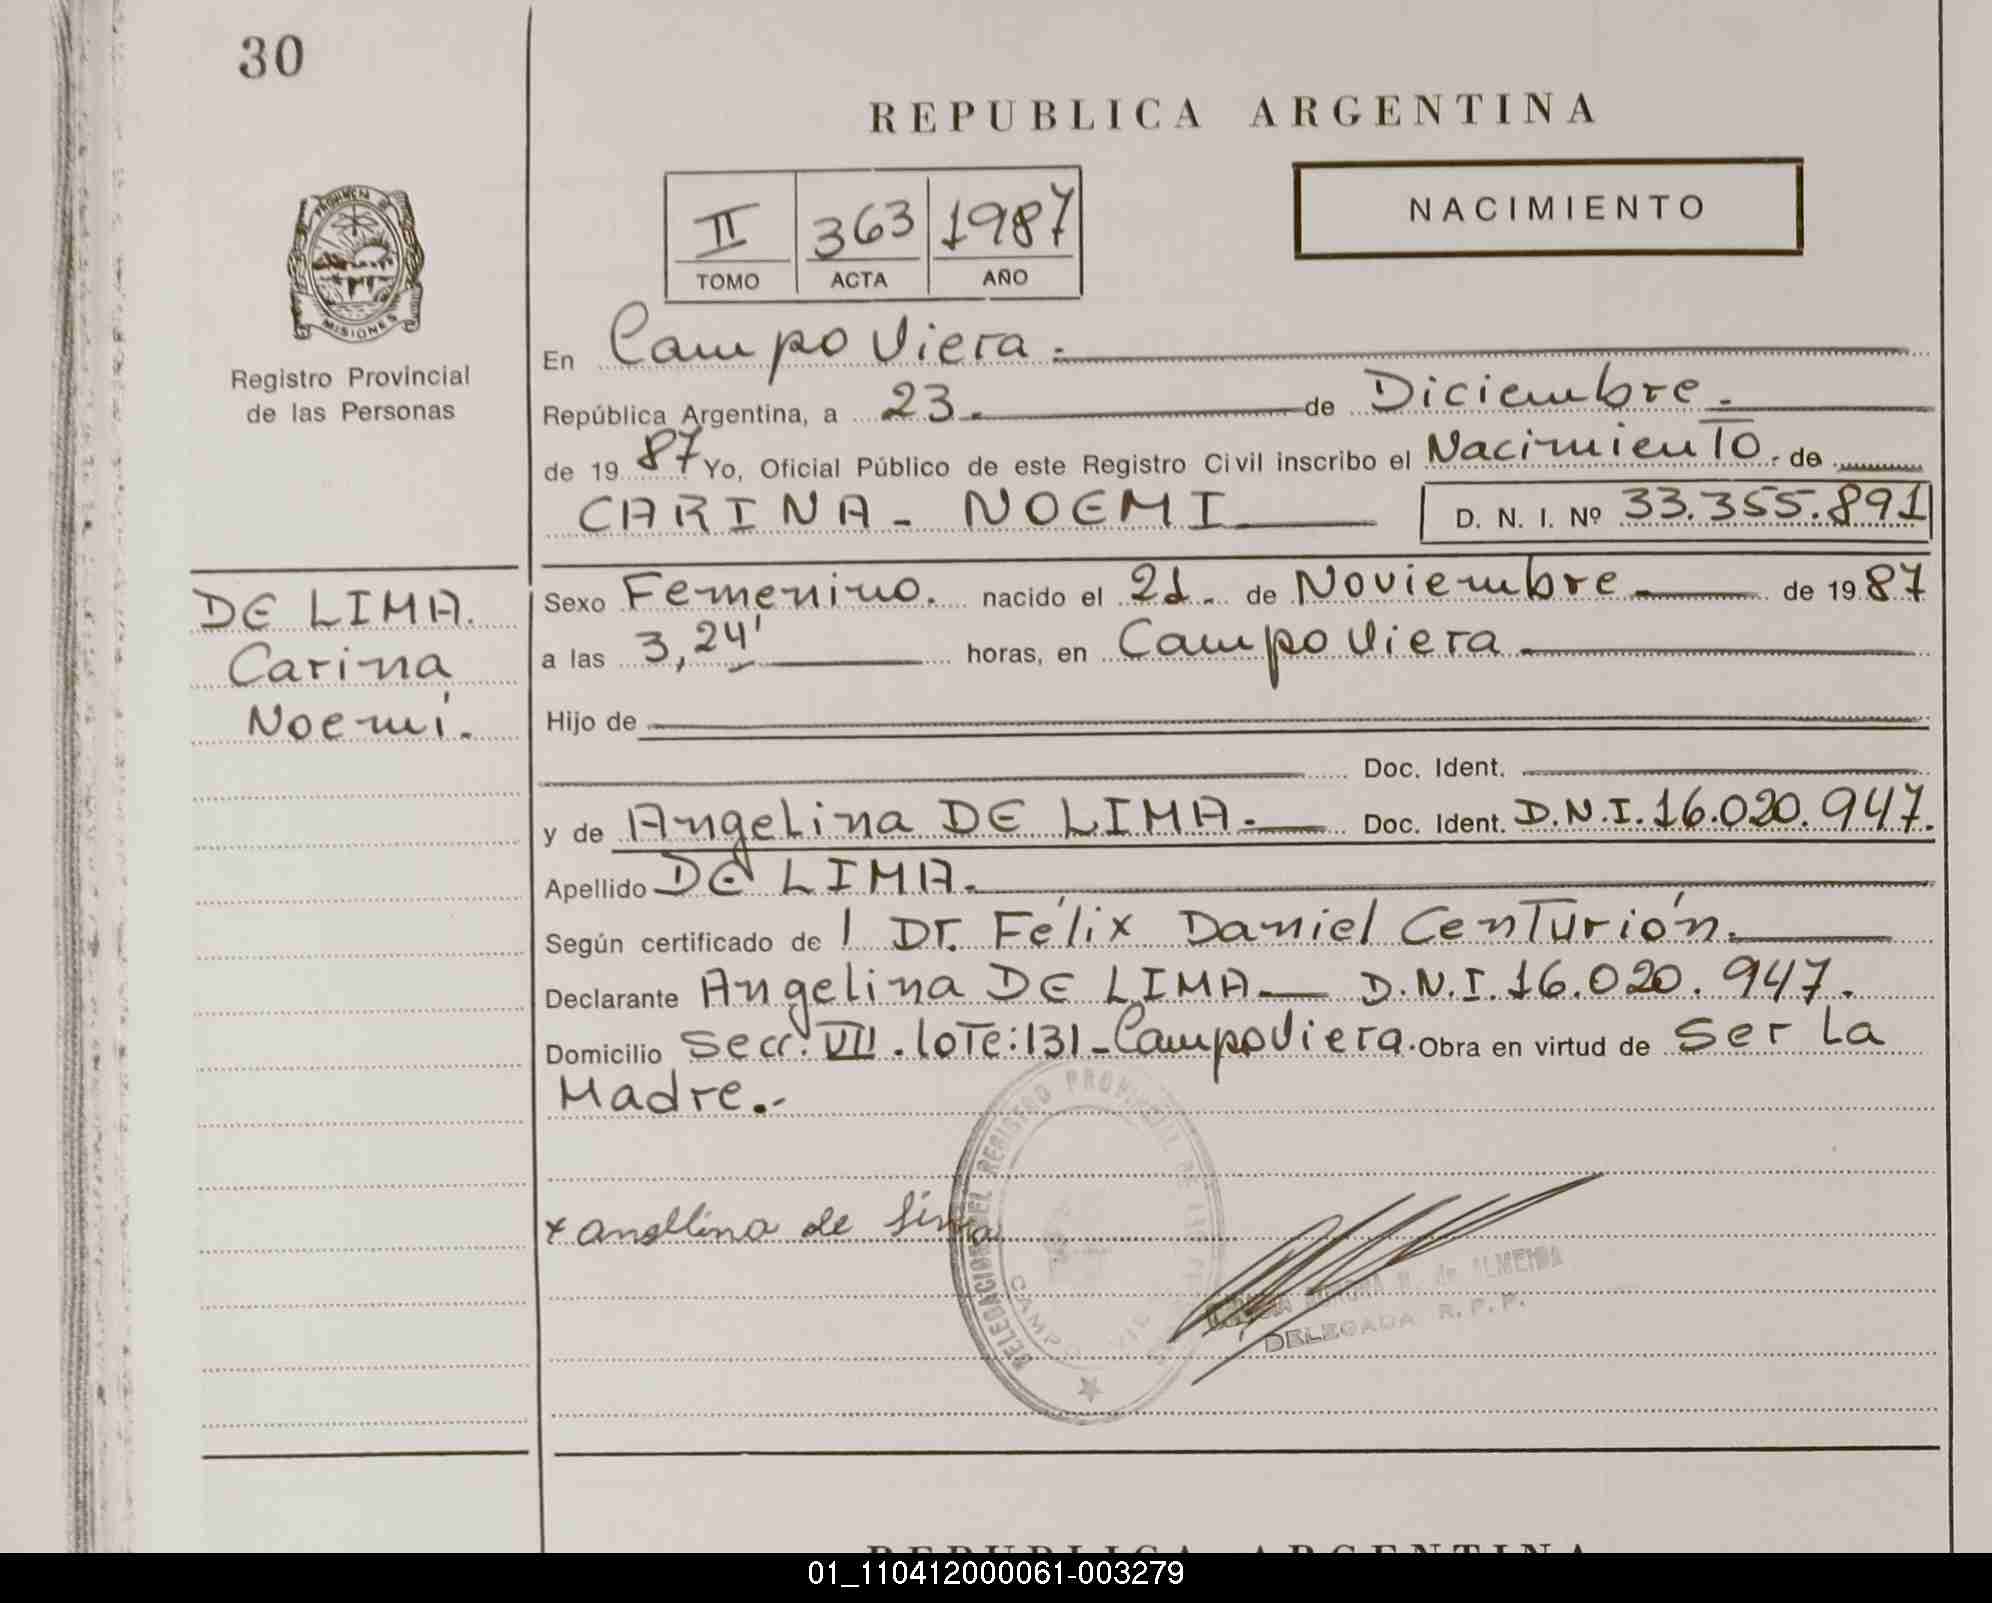 30
REPUBLICA ARGENTINA
II 363 1987
TOMO ACTA AÑO
NACIMIENTO
PROVINCIA DE
MISIONES
Registro Provincial
de las Personas
En Campo Viera.
República Argentina, a 23. de Diciembre.
de 19 87 Yo, Oficial Público de este Registro Civil inscribo el Nacimiento. de
CARINA - NOEMI D. N. I. Nº 33.355.891
DE LIMA.
Carina
Noemí.
Sexo Femenino. nacido el 21. de Noviembre de 19 87
a las 3,24' horas, en Campo Viera
Hijo de
Doc. Ident.
y de Angelina DE LIMA. Doc. Ident. D.N.I. 16.020.947.
Apellido DE LIMA.
Según certificado de l Dr. Félix Daniel Centurión.
Declarante Angelina DE LIMA D.N.I. 16.020.947.
Domicilio Secc. VII. lote: 131 - Campo Viera. Obra en virtud de Ser La
Madre.-
DELEGACION DEL REGISTRO PROVINCIAL DE LAS
CAMPO VIE
x Angelina de Lima
de ALMEIDA
DELEGADA R. P. P.
REPUBLICA ARGENTINA
01_110412000061-003279